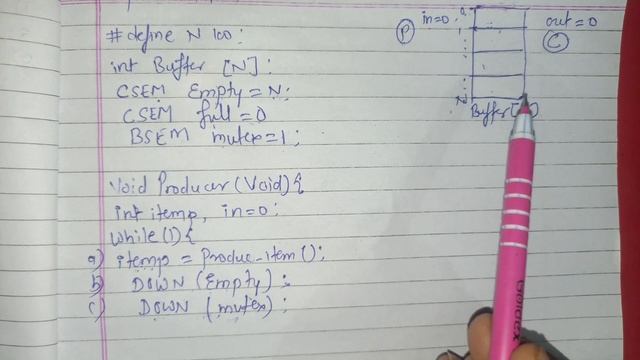 # define N 100:
int Buffer [N]:
CSEM Empty = N:
CSEM full = 0
BSEM mutex = 1;
Void Producer (Void) {
int itemp, in=0:
while (1) {
a) itemp = Produc-item ();
b) DOWN (Empty);
c) DOWN (mutex):
in=0:
out = 0
P
C
N
Buffer [